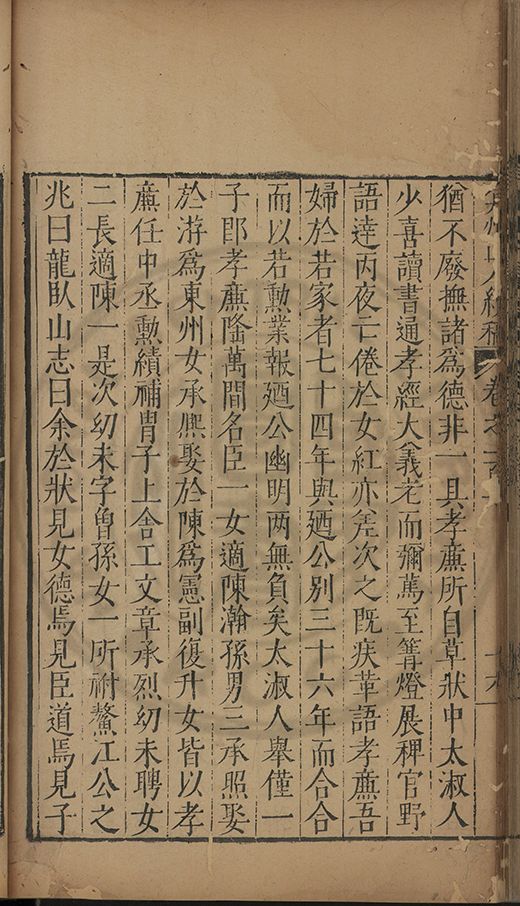 弇州山人續稿 卷之一百 十六
猶不廢撫諸爲德非一具孝廉所自草狀中太淑人
少喜讀書通孝經大義老而彌篤至篝燈展稗官野
語達丙夜亡倦於女紅亦差次之既疾革語孝廉吾
婦於若家者七十四年與廼公別三十六年而合合
而以若勲業報廼公幽明两無負矣太淑人舉僅一
子卽孝廉隆萬間名臣一女適陳瀚孫男三承照娶
於游爲東州女承熈娶於陳爲憲副復升女皆以孝
廉任中丞勲績補胄子上舍工文章承烈幼未聘女
二長適陳一是次幼未字曾孫女一所祔鰲江公之
兆曰龍臥山志曰余於狀見女德焉見臣道焉見子